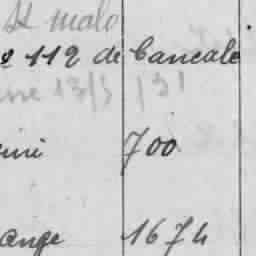 St malo
112 de Cancale
13/3 /31
700
ange 1674